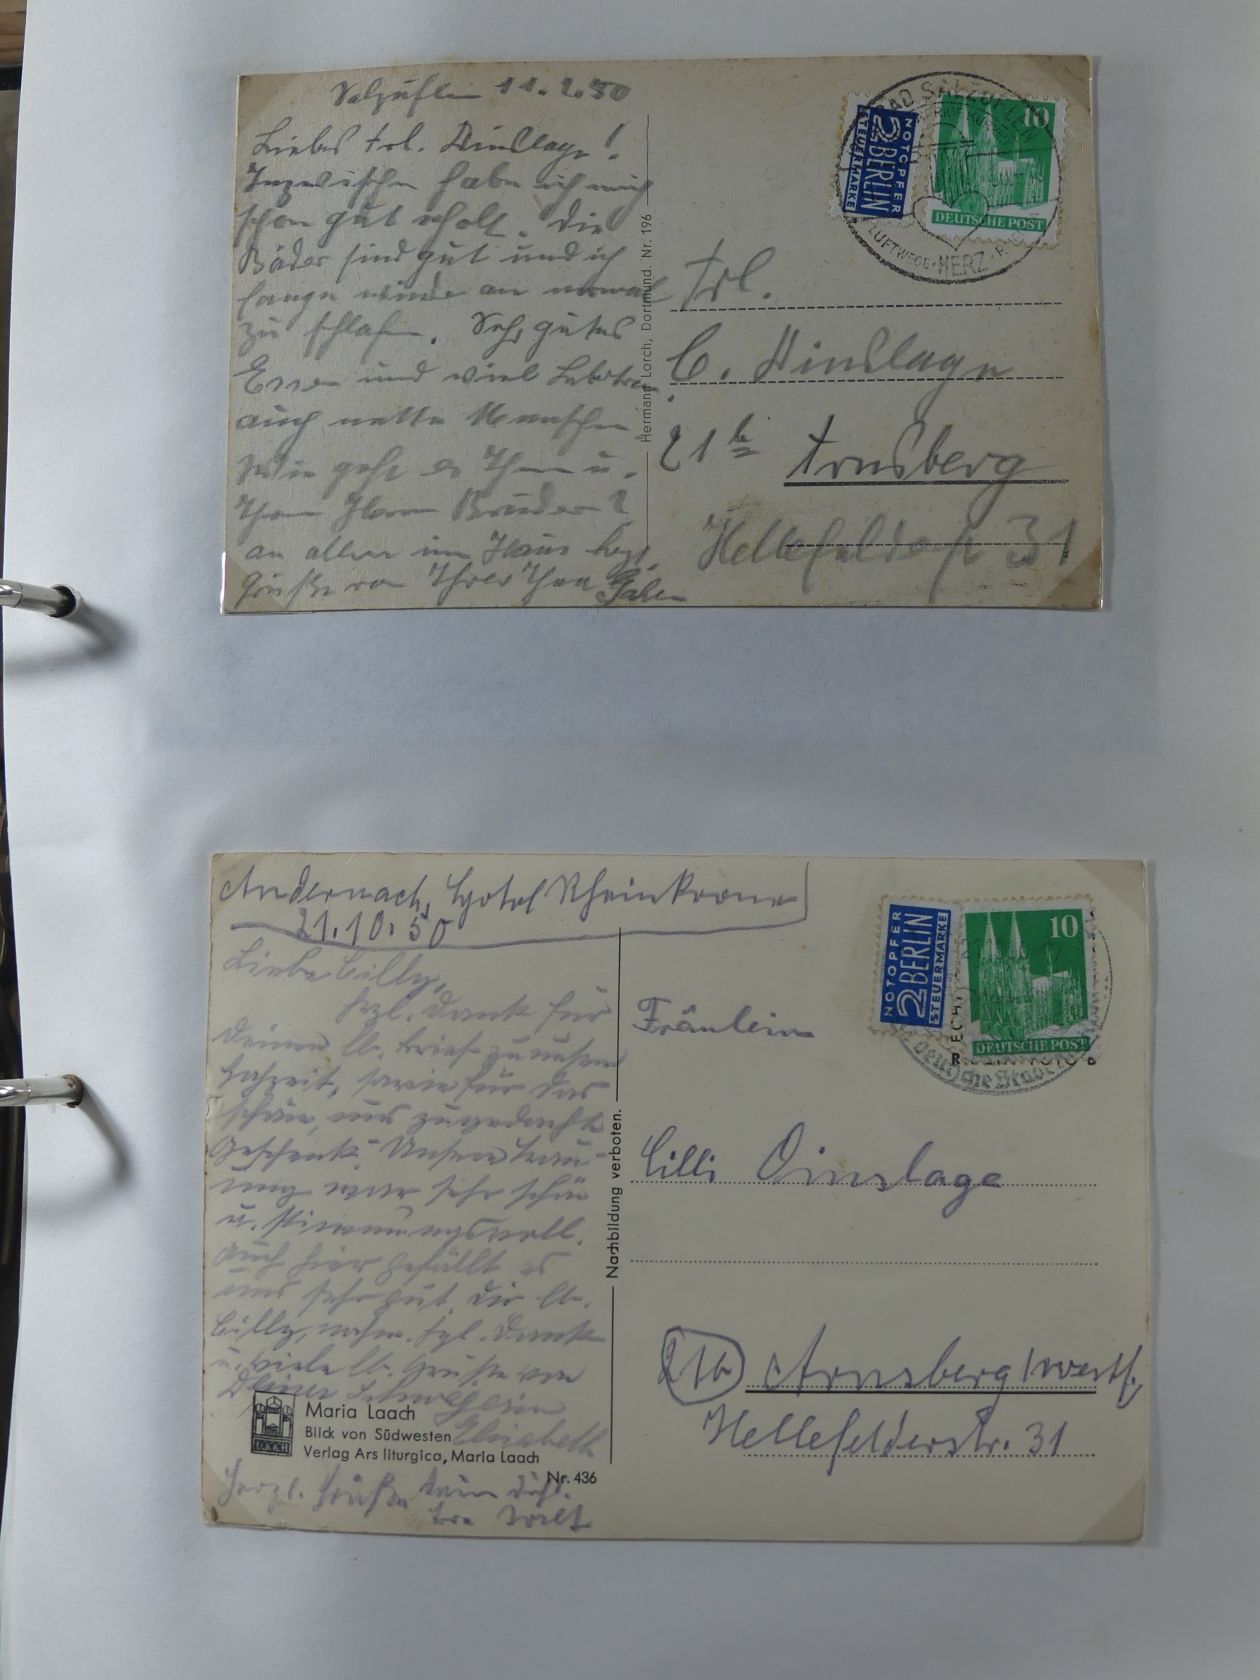 Salzuflen 11.2.50
Liebes Frl. Dinslage!
Inzwischen habe ich mich
schon gut erholt. Die
Bäder sind gut und ich
fange wieder an normal
zu schlafen. Sehr gutes
Essen und viel
auch nette Menschen
Wie geht es Ihnen u.
Ihrem Herrn Bruder?
an alle im Haus herzl.
Grüße von Ihrer
Hermann Lorch, Dortmund. Nr. 196
NOTOPFER
2 BERLIN
STEUERMARKE
10
DEUTSCHE POST
BAD SALZUFLEN
LUFTWEGE · HERZ ·
Frl.
C. Dinslage
21b Arnsberg
Hellefelderstr 31
Andernach, Hotel Rheinkrone
21.10.50
Liebe Cilly,
hrzl. Dank für
Deinen lb. Brief zu unserer
Hochzeit, sowie für das
schöne, uns zugedachte
Geschenk. Unsere Trau-
ung war sehr schön
u. stimmungsvoll.
Auch hier gefällt es
uns sehr gut. Dir lb.
Cilly, nochm. hzl. Dank
u. viele lb. Grüße von
Deiner Schwägerin
Elisabeth
Maria Laach
Blick von Südwesten
Verlag Ars liturgica, Maria Laach
Nr. 436
LAACH
Herzl. Grüße
Nachbildung verboten.
NOTOPFER
2 BERLIN
STEUERMARKE
10
DEUTSCHE POST
ECHT
Fräulein
Cilli Dinslage
21b Arnsberg/Westf.
Hellefelderstr. 31